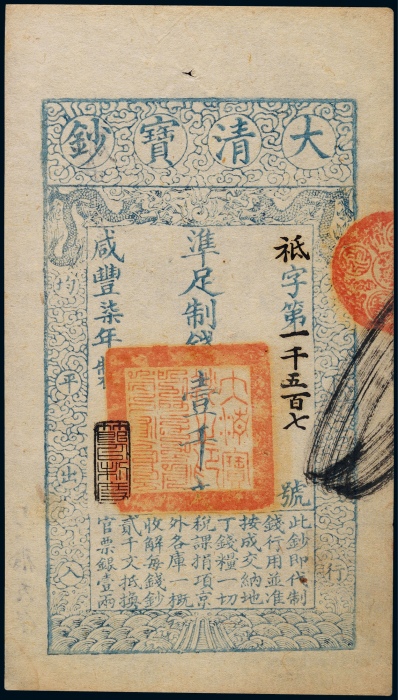 大清寶鈔
祗字第一千五百七
號
準足制錢壹千文
咸豐柒年製
此鈔即代制
錢行用並准
按成交納地
丁錢糧一切
稅課捐項京
外各庫一概
收解每錢鈔
貳千文抵換
官票銀壹兩
行
均平出入